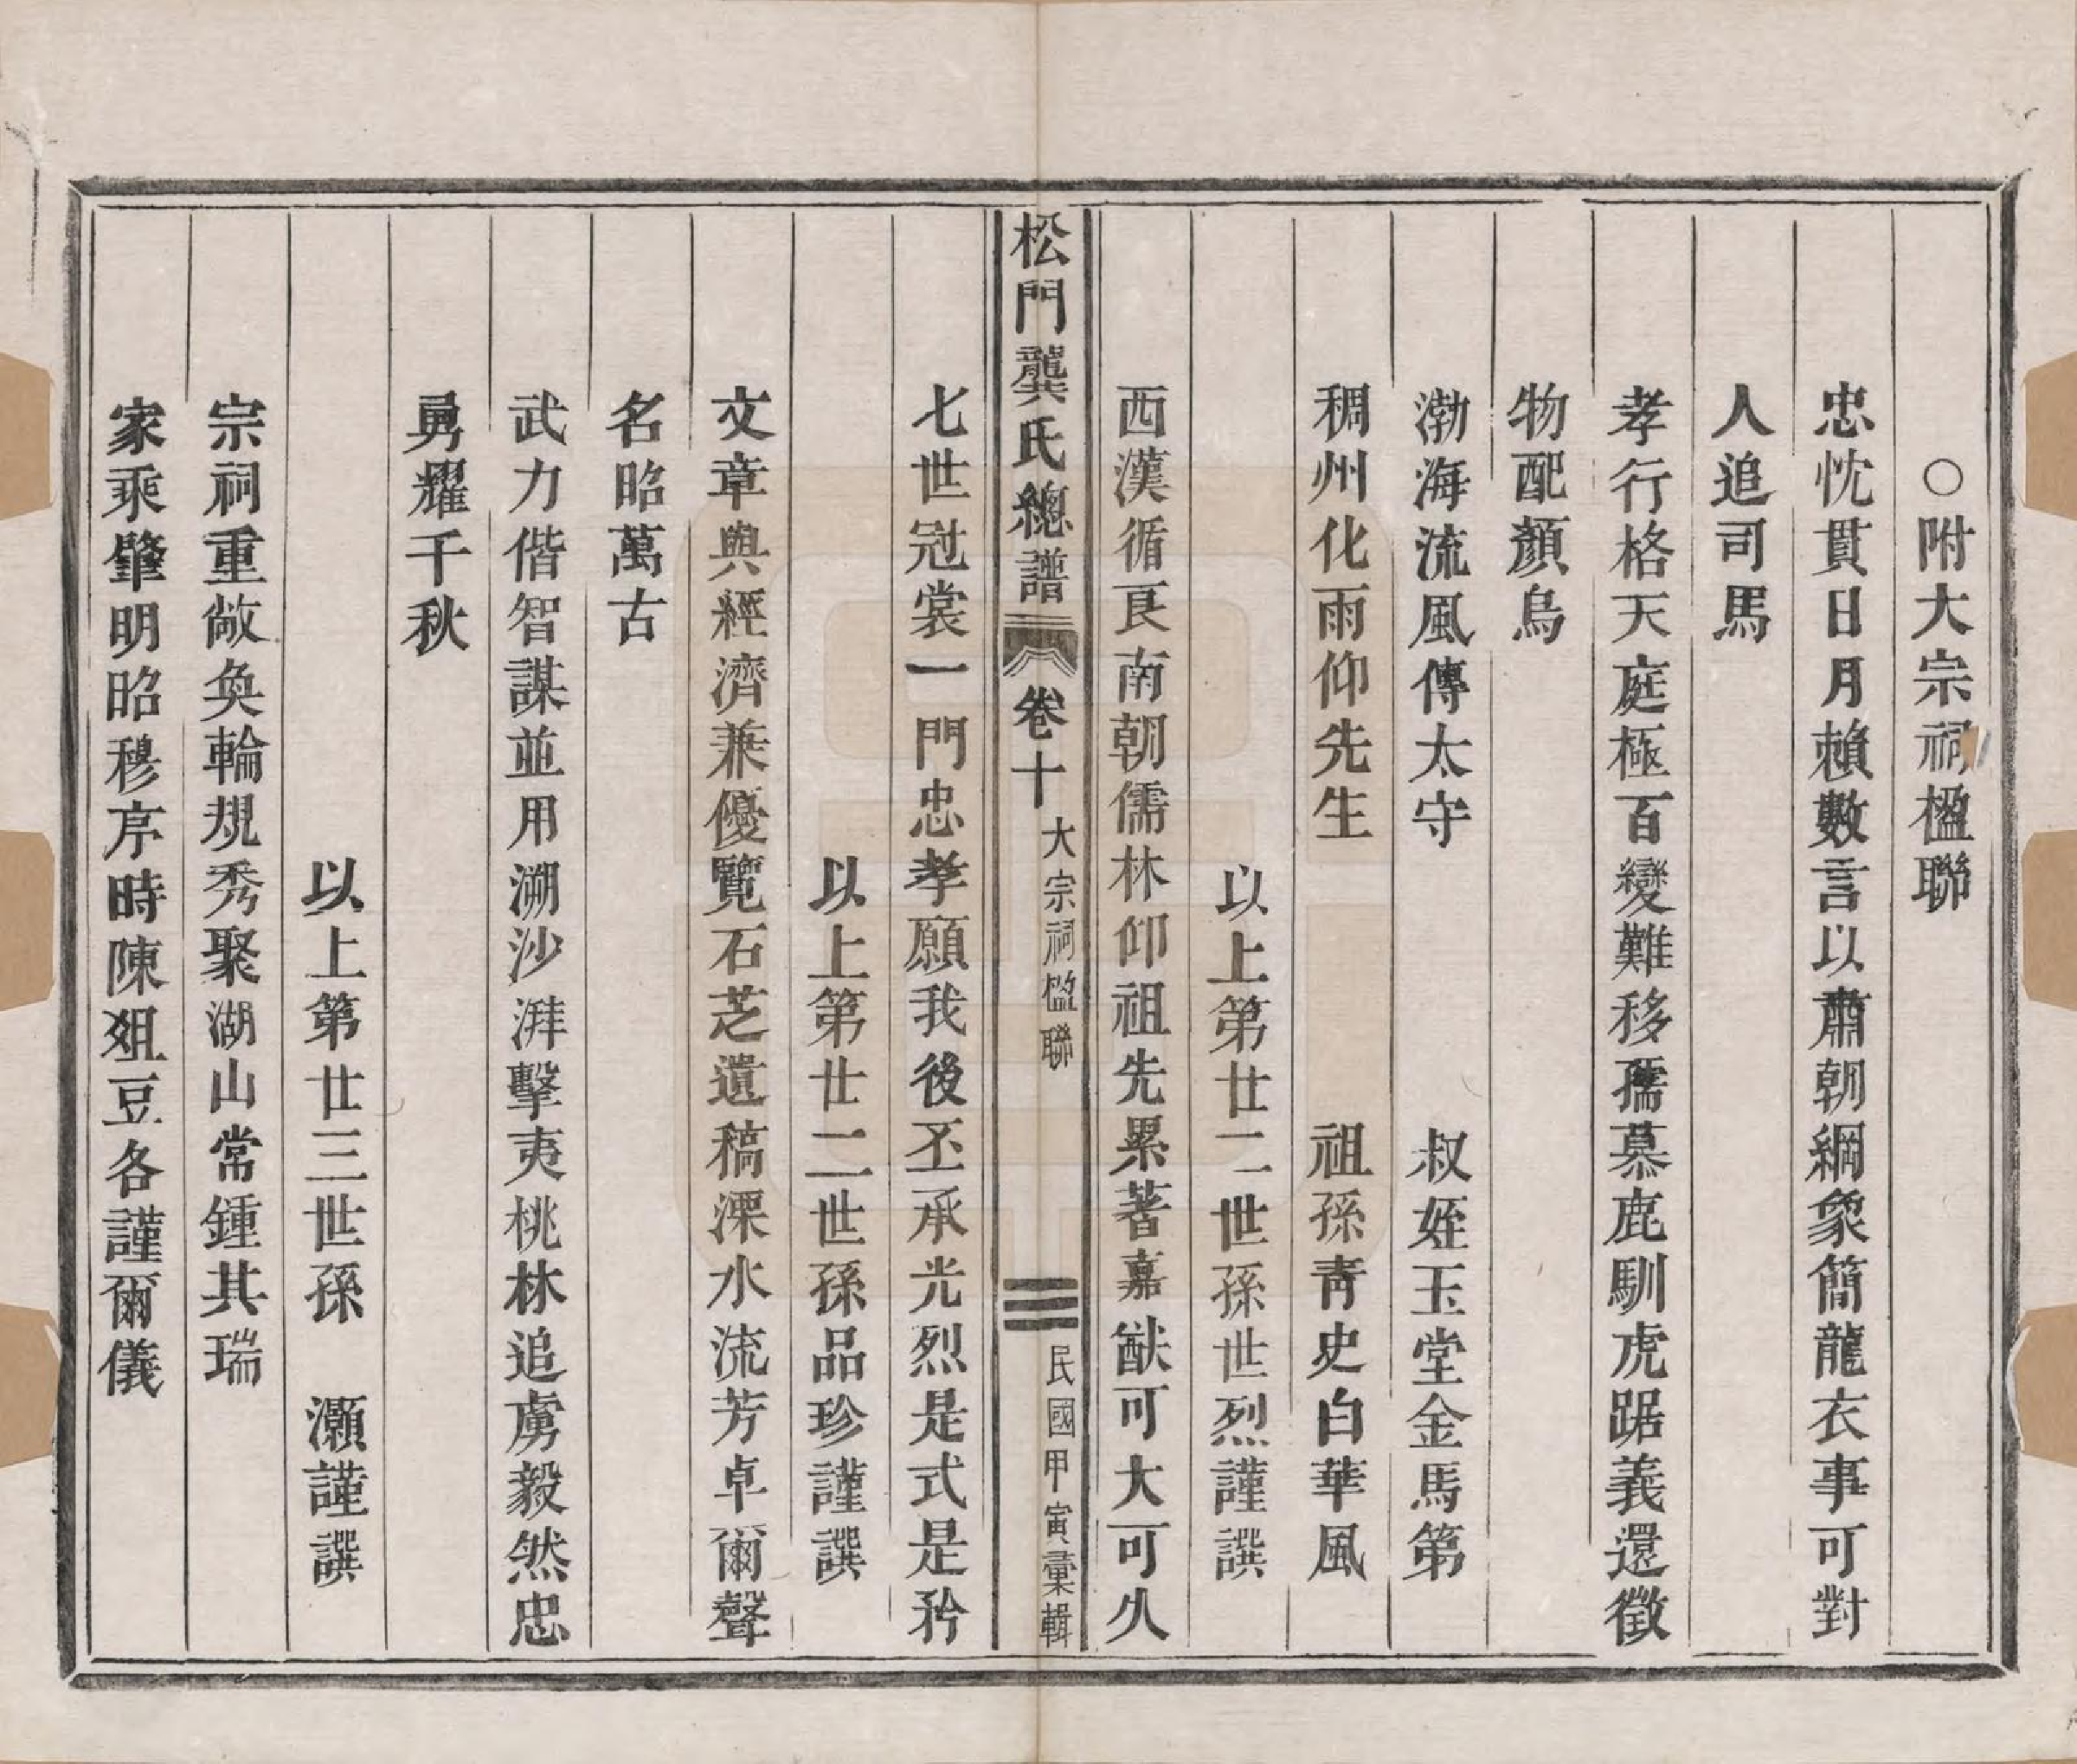 ○附大宗祠楹聯
忠忱貫日月賴數言以肅朝綱象簡龍衣事可對
人追司馬
孝行格天庭極百變難移孺慕鹿馴虎踞義還徵
物配顏烏
渤海流風傳太守　叔姪玉堂金馬第
稠州化雨仰先生　祖孫靑史白華風
以上第廿二世孫世烈謹譔
西漢循良南朝儒林仰祖先累著嘉猷可大可久
松門龔氏總譜　卷十　大宗祠楹聯　三　民國甲寅彙輯
七世冠裳一門忠孝願我後丕承光烈是式是矜
以上第廿二世孫品珍謹譔
文章與經濟兼優覽石芝遺稿溧水流芳卓爾聲
名昭萬古
武力偕智謀並用溯沙湃擊夷桃林追虜毅然忠
勇耀千秋
以上第廿三世孫　灝謹譔
宗祠重敞奐輪規秀聚湖山常鍾其瑞
家乘肇明昭穆序時陳俎豆各謹爾儀